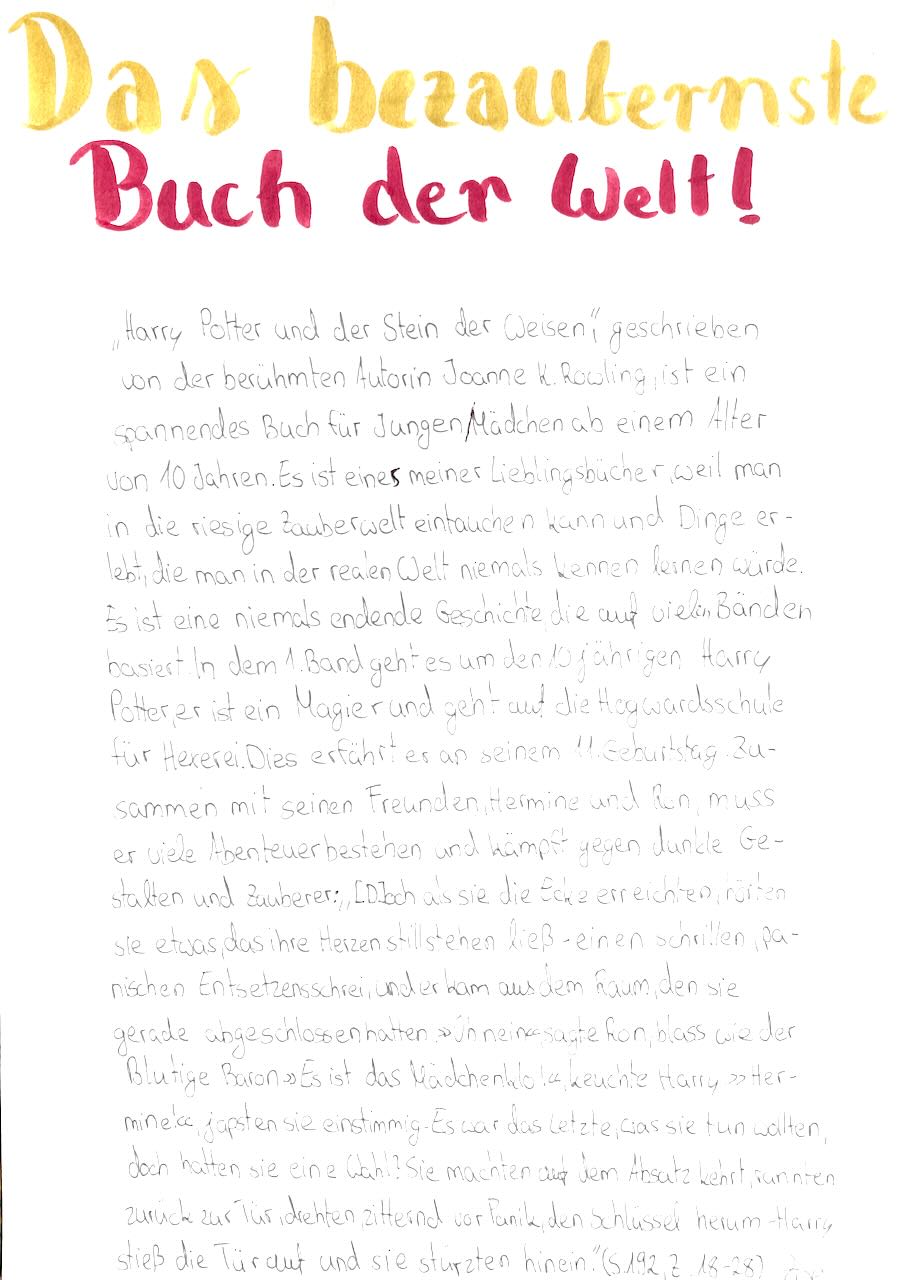 Das bezaubernste
Buch der Welt!
„Harry Potter und der Stein der Weisen“, geschrieben
von der berühmten Autorin Joanne K. Rowling, ist ein
spannendes Buch für Jungen/Mädchen ab einem Alter
von 10 Jahren. Es ist eines meiner Lieblingsbücher, weil man
in die riesige Zauberwelt eintauchen kann und Dinge er-
lebt, die man in der realen Welt niemals kennen lernen würde.
Es ist eine niemals endende Geschichte, die auf vielen Bänden
basiert. In dem 1. Band geht es um den 10 jährigen Harry
Potter, er ist ein Magier und geht auf die Hogwardsschule
für Hexerei. Dies erfährt er an seinem 11. Geburtstag. Zu-
sammen mit seinen Freunden, Hermine und Ron, muss
er viele Abenteuer bestehen und kämpft gegen dunkle Ge-
stalten und Zauberer: „[D]och als sie die Ecke erreichten, hörten
sie etwas, das ihre Herzen stillstehen ließ - einen schrillen, pa-
nischen Entsetzensschrei, und er kam aus dem Raum, den sie
gerade abgeschlossen hatten. »Oh nein«, sagte Ron, blass wie der
Blutige Baron. »Es ist das Mädchenklo!«, keuchte Harry. »Her-
mine!«, japsten sie einstimmig. Es war das Letzte, was sie tun wollten,
doch hatten sie eine Wahl? Sie machten auf dem Absatz kehrt, rannten
zurück zur Tür, drehten, zitternd vor Panik, den Schlüssel herum - Harry
stieß die Tür auf und sie stürzten hinein.“ (S.192, Z. 18-28)